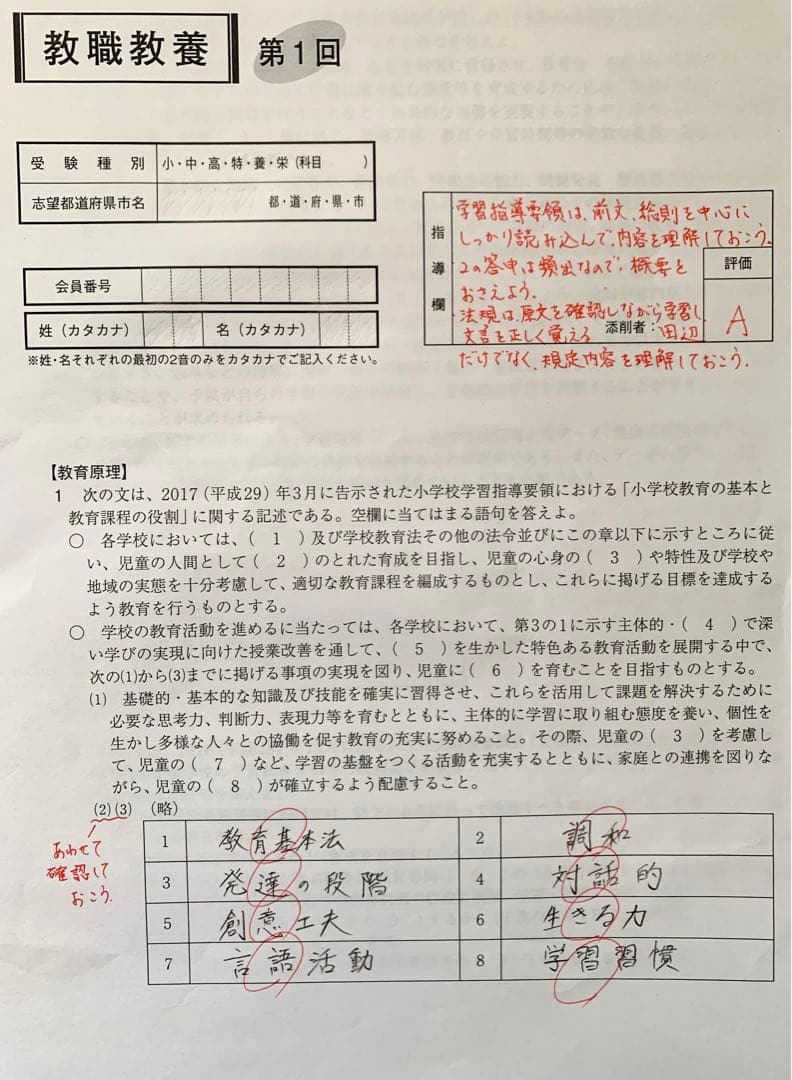 教職教養 第1回
受験種別 小・中・高・特・養・栄(科目 )
志望都道府県市名 都・道・府・県・市
会員番号
姓(カタカナ) 名(カタカナ)
※姓・名それぞれの最初の2音のみをカタカナでご記入ください。
指導欄
学習指導要領は、前文、総則を中心に
しっかり読み込んで、内容を理解しておこう。
2の答申は頻出なので、概要を
おさえよう.
法規は、原文を確認しながら学習し
文言を正しく覚える
だけでなく、規定内容を理解しておこう.
添削者:田辺
評価
A
【教育原理】
1 次の文は、2017(平成29)年3月に告示された小学校学習指導要領における「小学校教育の基本と
教育課程の役割」に関する記述である。空欄に当てはまる語句を答えよ。
○ 各学校においては、( 1 )及び学校教育法その他の法令並びにこの章以下に示すところに従
い、児童の人間として( 2 )のとれた育成を目指し、児童の心身の( 3 )や特性及び学校や
地域の実態を十分考慮して、適切な教育課程を編成するものとし、これらに掲げる目標を達成する
よう教育を行うものとする。
○ 学校の教育活動を進めるに当たっては、各学校において、第3の1に示す主体的・( 4 )で深
い学びの実現に向けた授業改善を通して、( 5 )を生かした特色ある教育活動を展開する中で、
次の(1)から(3)までに掲げる事項の実現を図り、児童に( 6 )を育むことを目指すものとする。
(1) 基礎的・基本的な知識及び技能を確実に習得させ、これらを活用して課題を解決するために
必要な思考力、判断力、表現力等を育むとともに、主体的に学習に取り組む態度を養い、個性を
生かし多様な人々との協働を促す教育の充実に努めること。その際、児童の( 3 )を考慮し
て、児童の( 7 )など、学習の基盤をつくる活動を充実するとともに、家庭との連携を図りな
がら、児童の( 8 )が確立するよう配慮すること。
(2)(3) (略)
あわせて
確認して
おこう.
1 教育基本法 2 調和
3 発達の段階 4 対話的
5 創意工夫 6 生きる力
7 言語活動 8 学習習慣